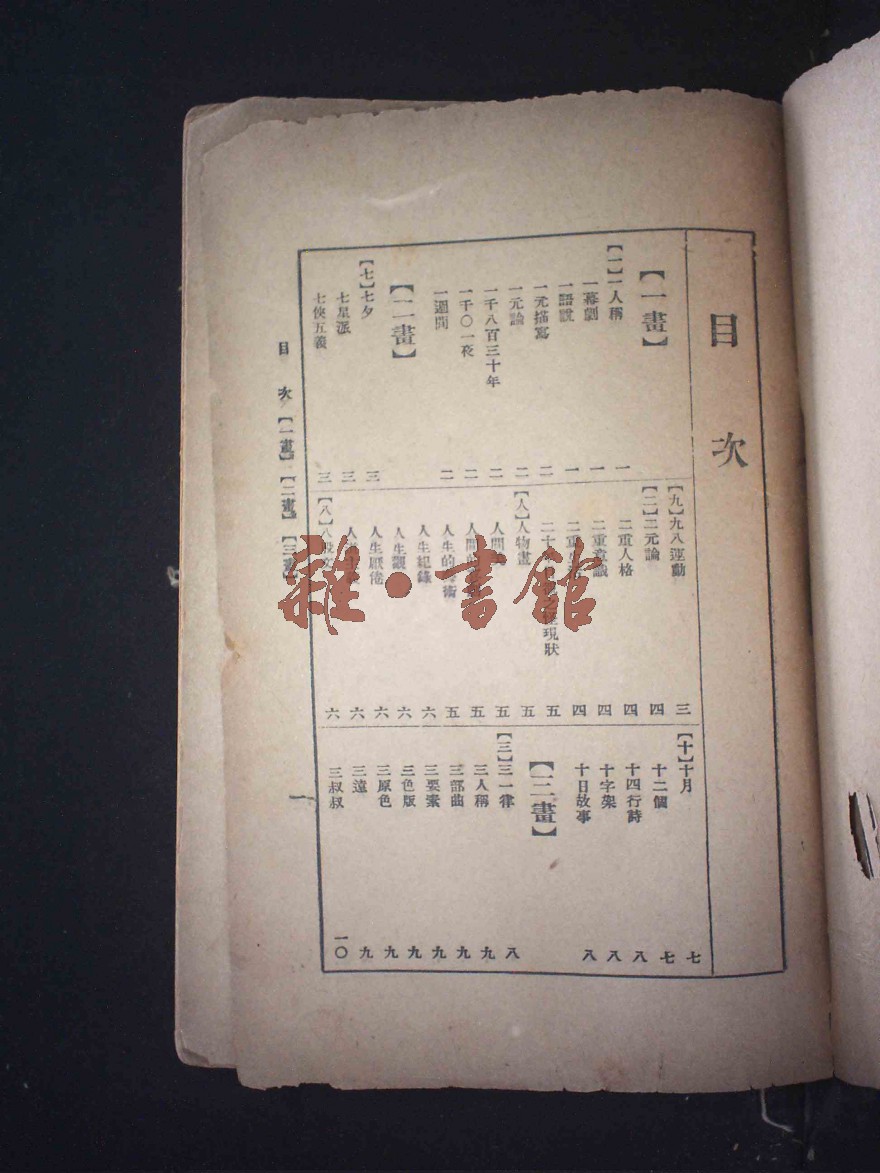 目次
【一畫】
【一】一人稱 一
一幕劇 一
一語說 一
一元描寫 二
一元論 二
一千八百三十年 二
一千〇一夜 二
一週間 二
【二畫】
【七】七夕 三
七星派 三
七俠五義 三
【九】九八運動 三
【二】二元論 四
二重人格 四
二重意識 四
二重 四
二十 現狀 五
【人】人物畫 五
人間 五
人間 五
人生的 術 五
人生記錄 六
人生觀 六
人生厭倦 六
人 六
【八】八股文 六
【十】十月 七
十二個 七
十四行詩 八
十字架 八
十日故事 八
【三畫】
【三】三一律 八
三人稱 九
三部曲 九
三要素 九
三色版 九
三原色 九
三遠 九
三叔叔 一〇
目次【一畫】【二畫】【三畫】
一
雜·書館